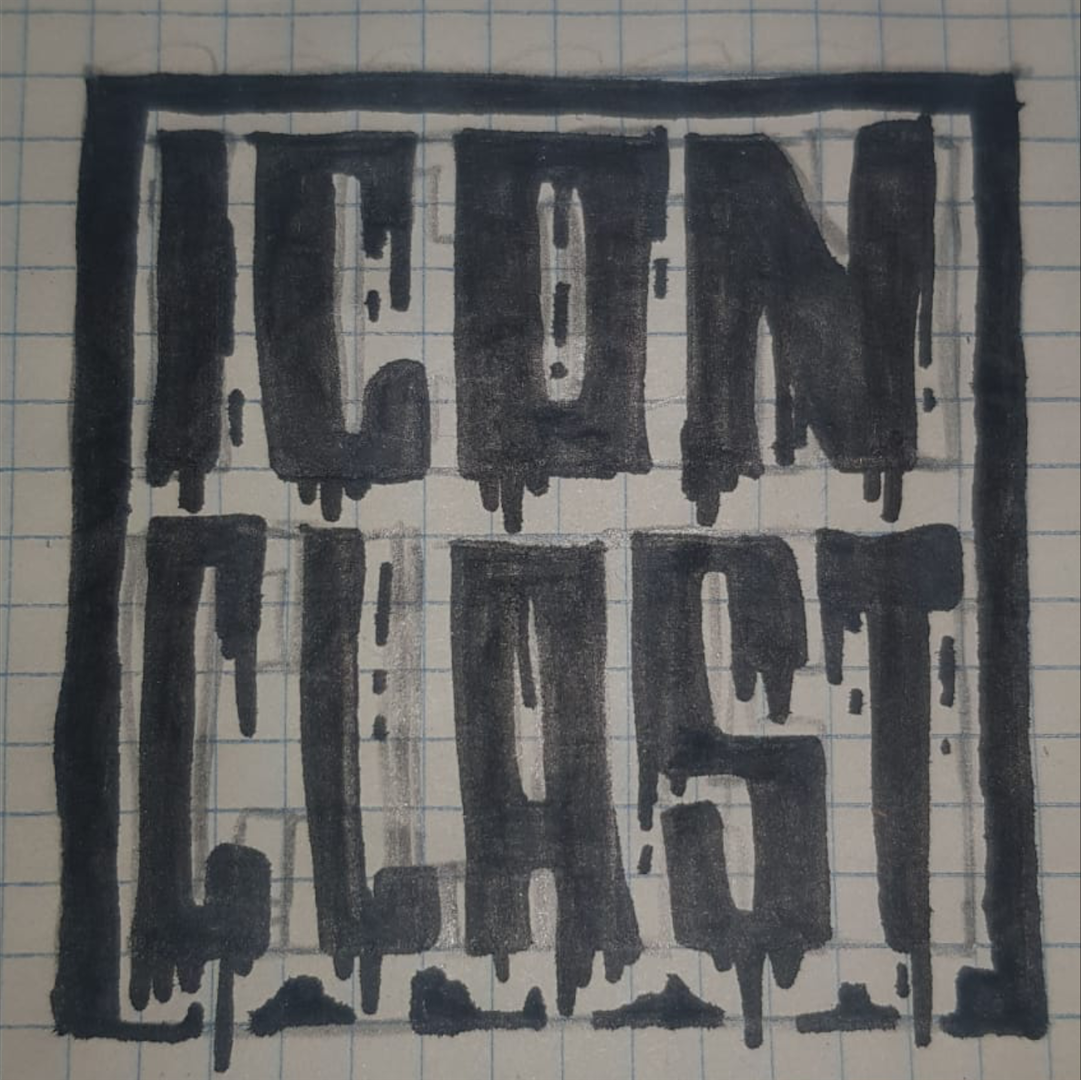 ICON
CLAST